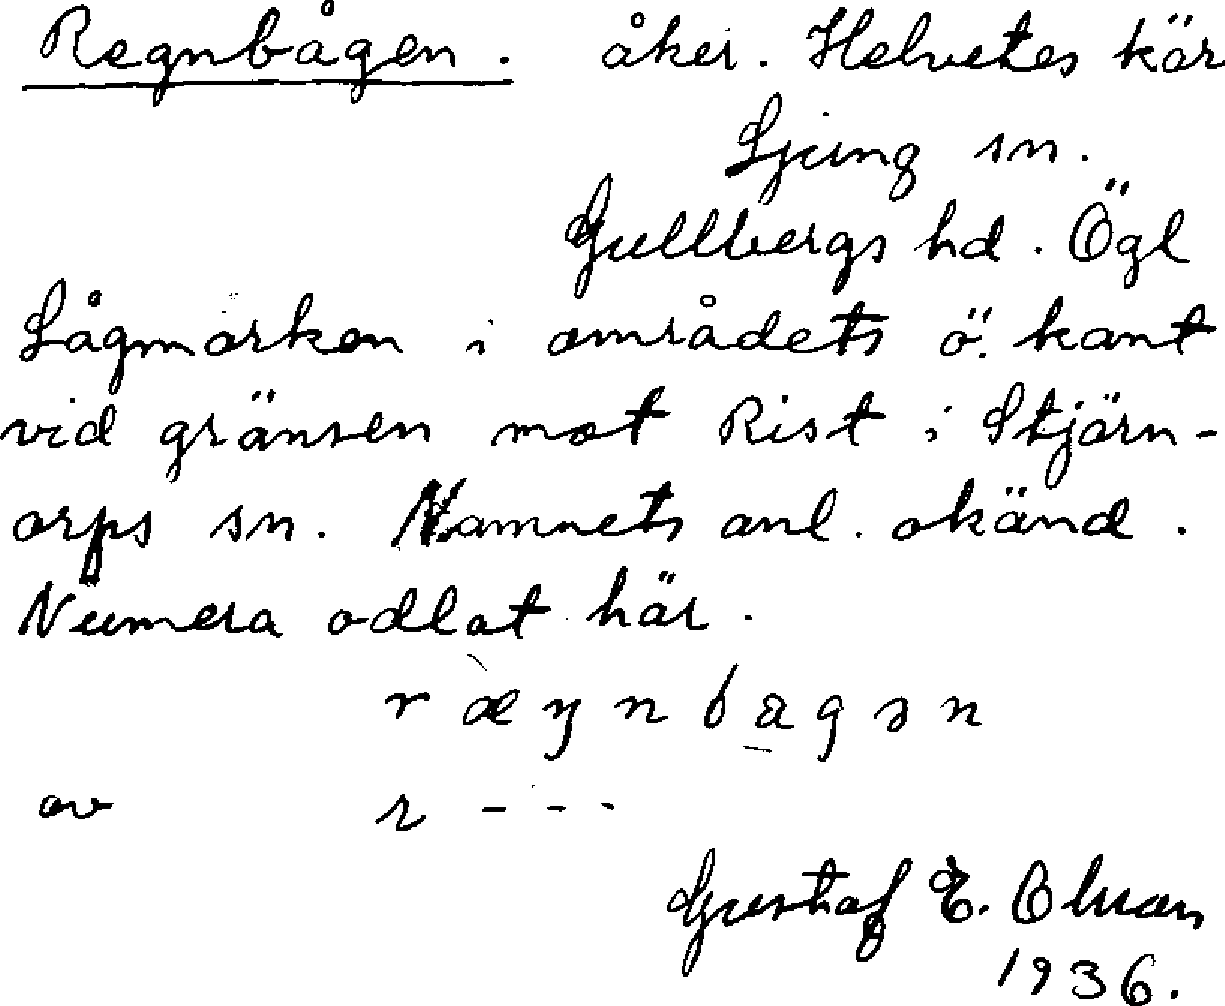 Regnbågen. åker. Helvetes kär
Ljung sn.
Gullbergs hd. Ögl
Lågmarken i områdets ö. kant
vid gränsen mot Rist i Stjärn-
orps sn. Namnets anl. okänd.
Numera odlat här.
ræŋnbagən
av r - - -
Gustaf E. Olsson
1936.